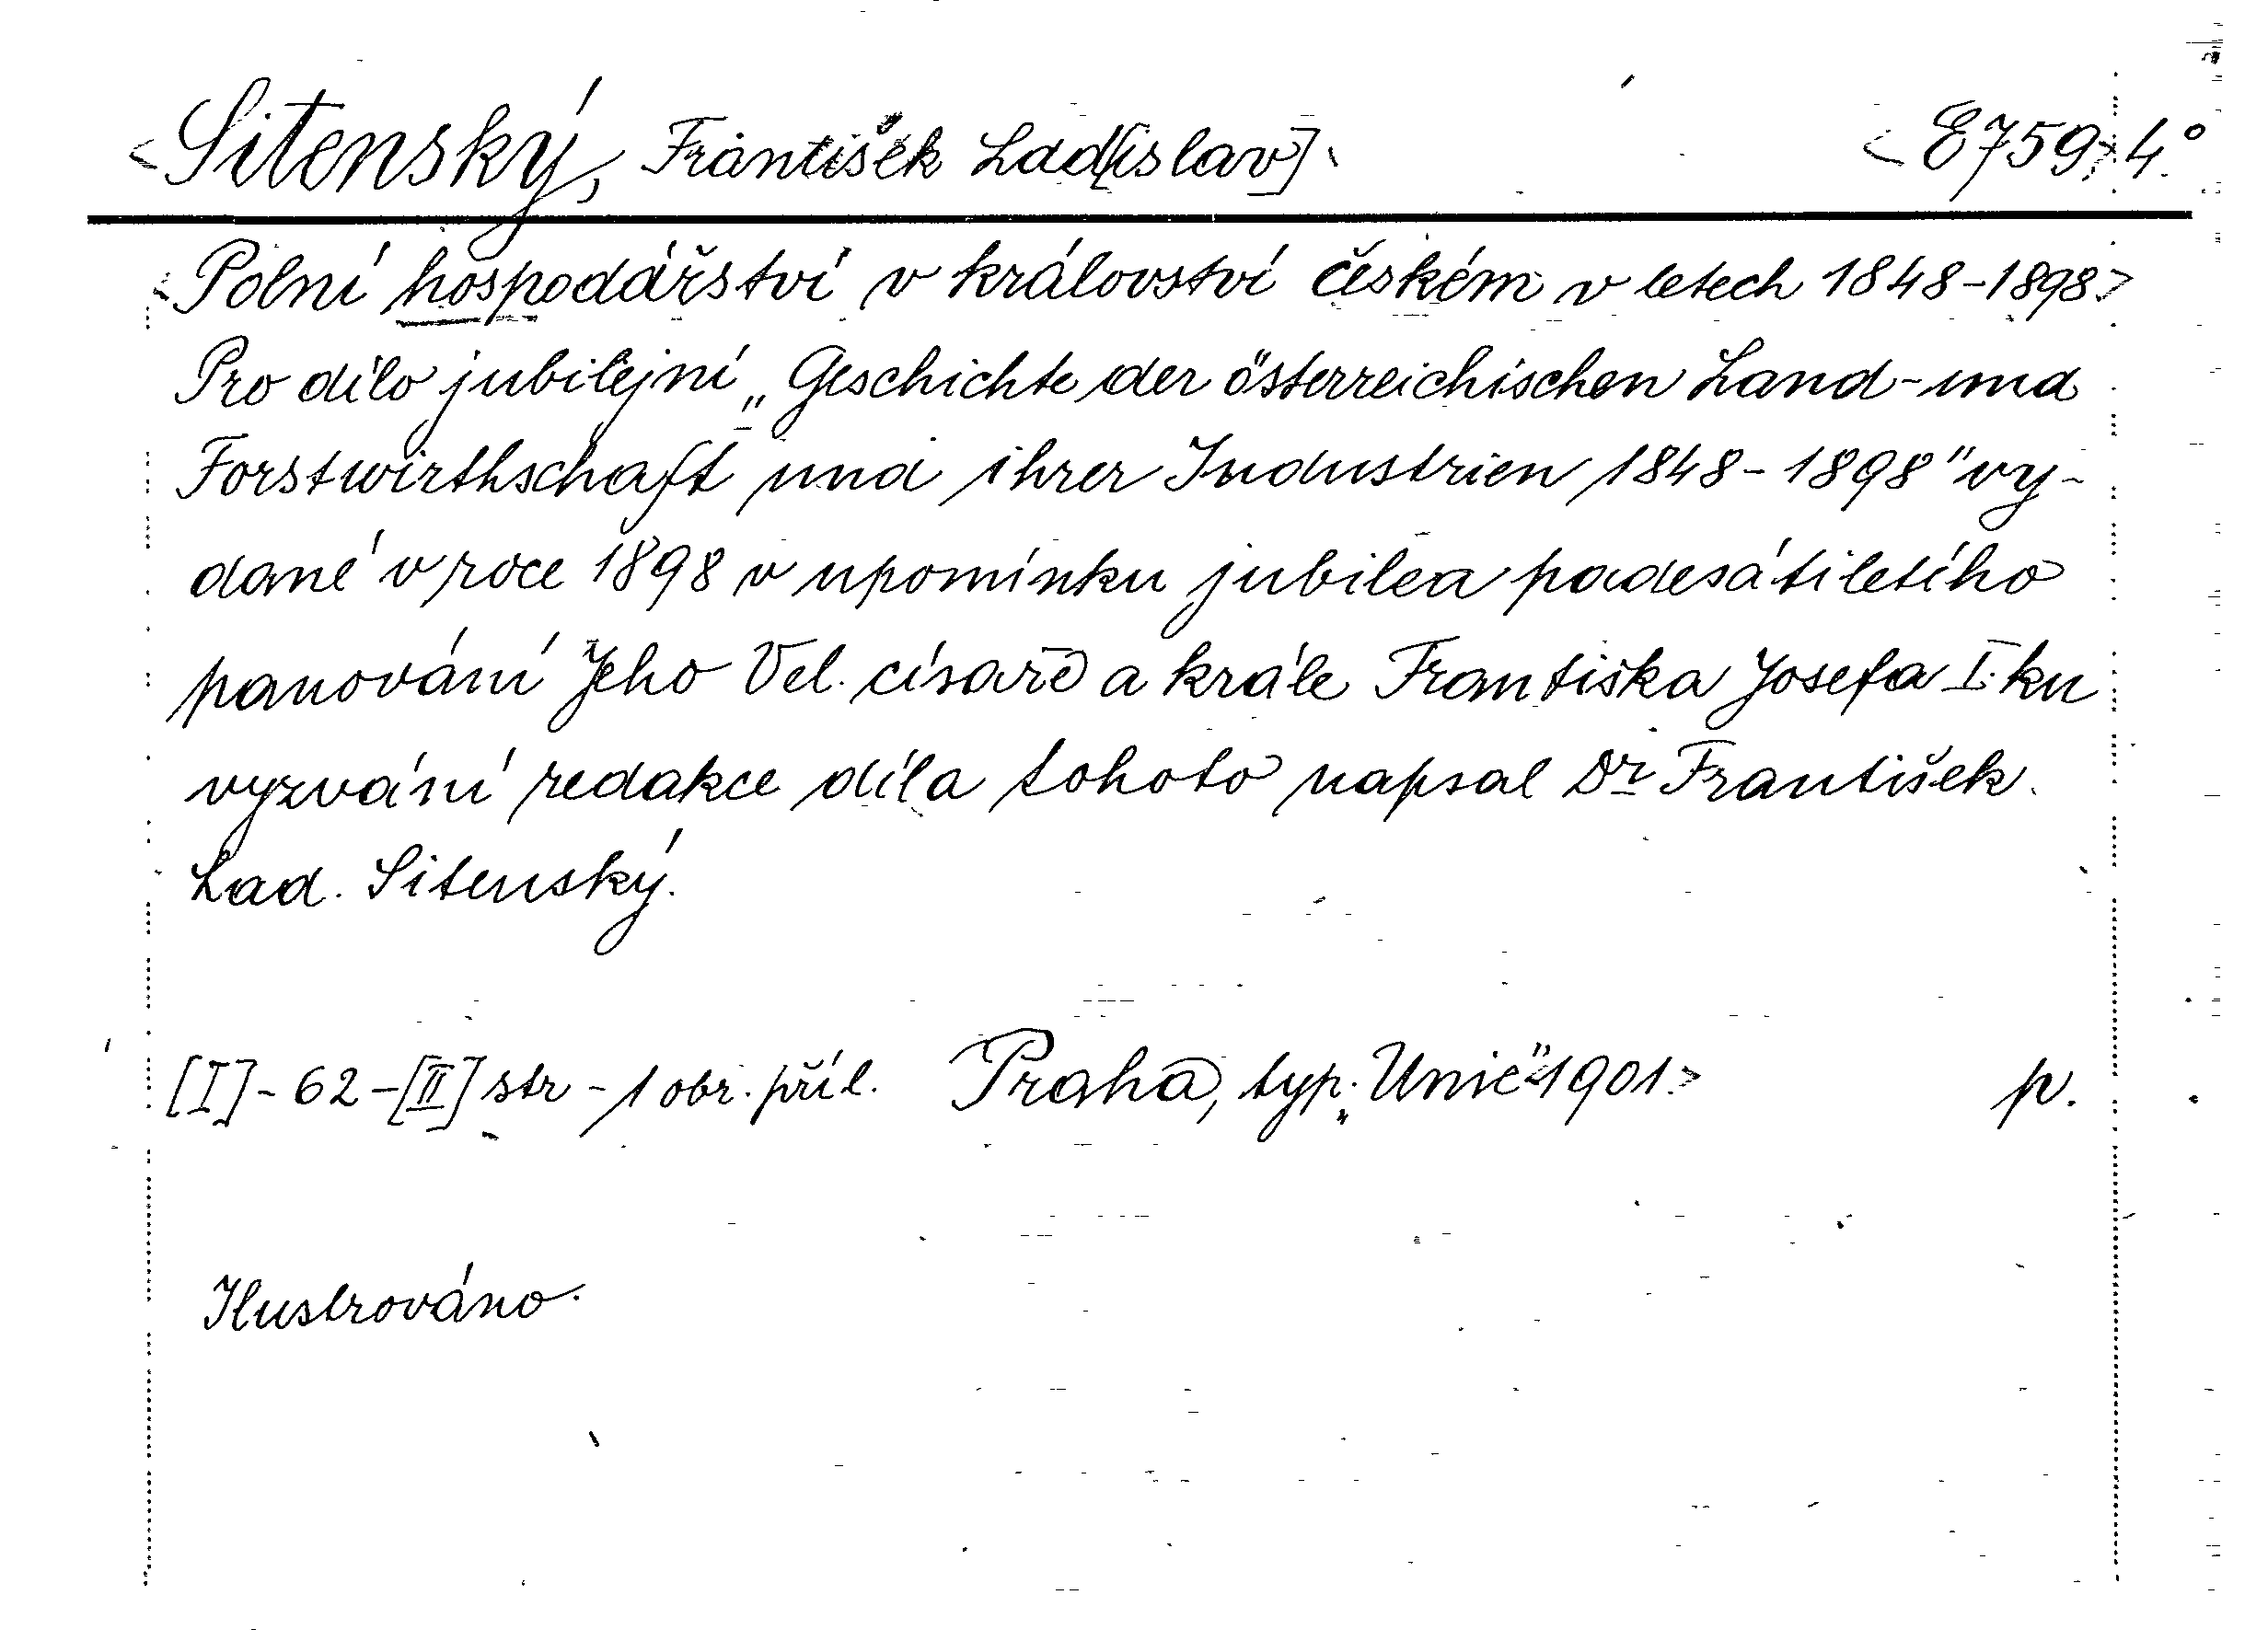 <Sitenský, František Lad[islav]. <E759>4°.
<Polní hospodářství v království českém v letech 1848-1898>
Pro dílo jubilejní „Geschichte der österreichischen Land- und
Forstwirthschaft und ihrer Industrien 1848-1898" vy-
dané v roce 1898 v upomínku jubilea padesátiletího
panování Jeho Vel. císaře a krále Františka Josefa I. ku
vyzvání redakce díla tohoto napsal Dr František
Lad. Sitenský.
[I]-62-[II] str - 1 obr. příl. Praha, typ. „Unie" <1901.> p.
Ilustrováno.